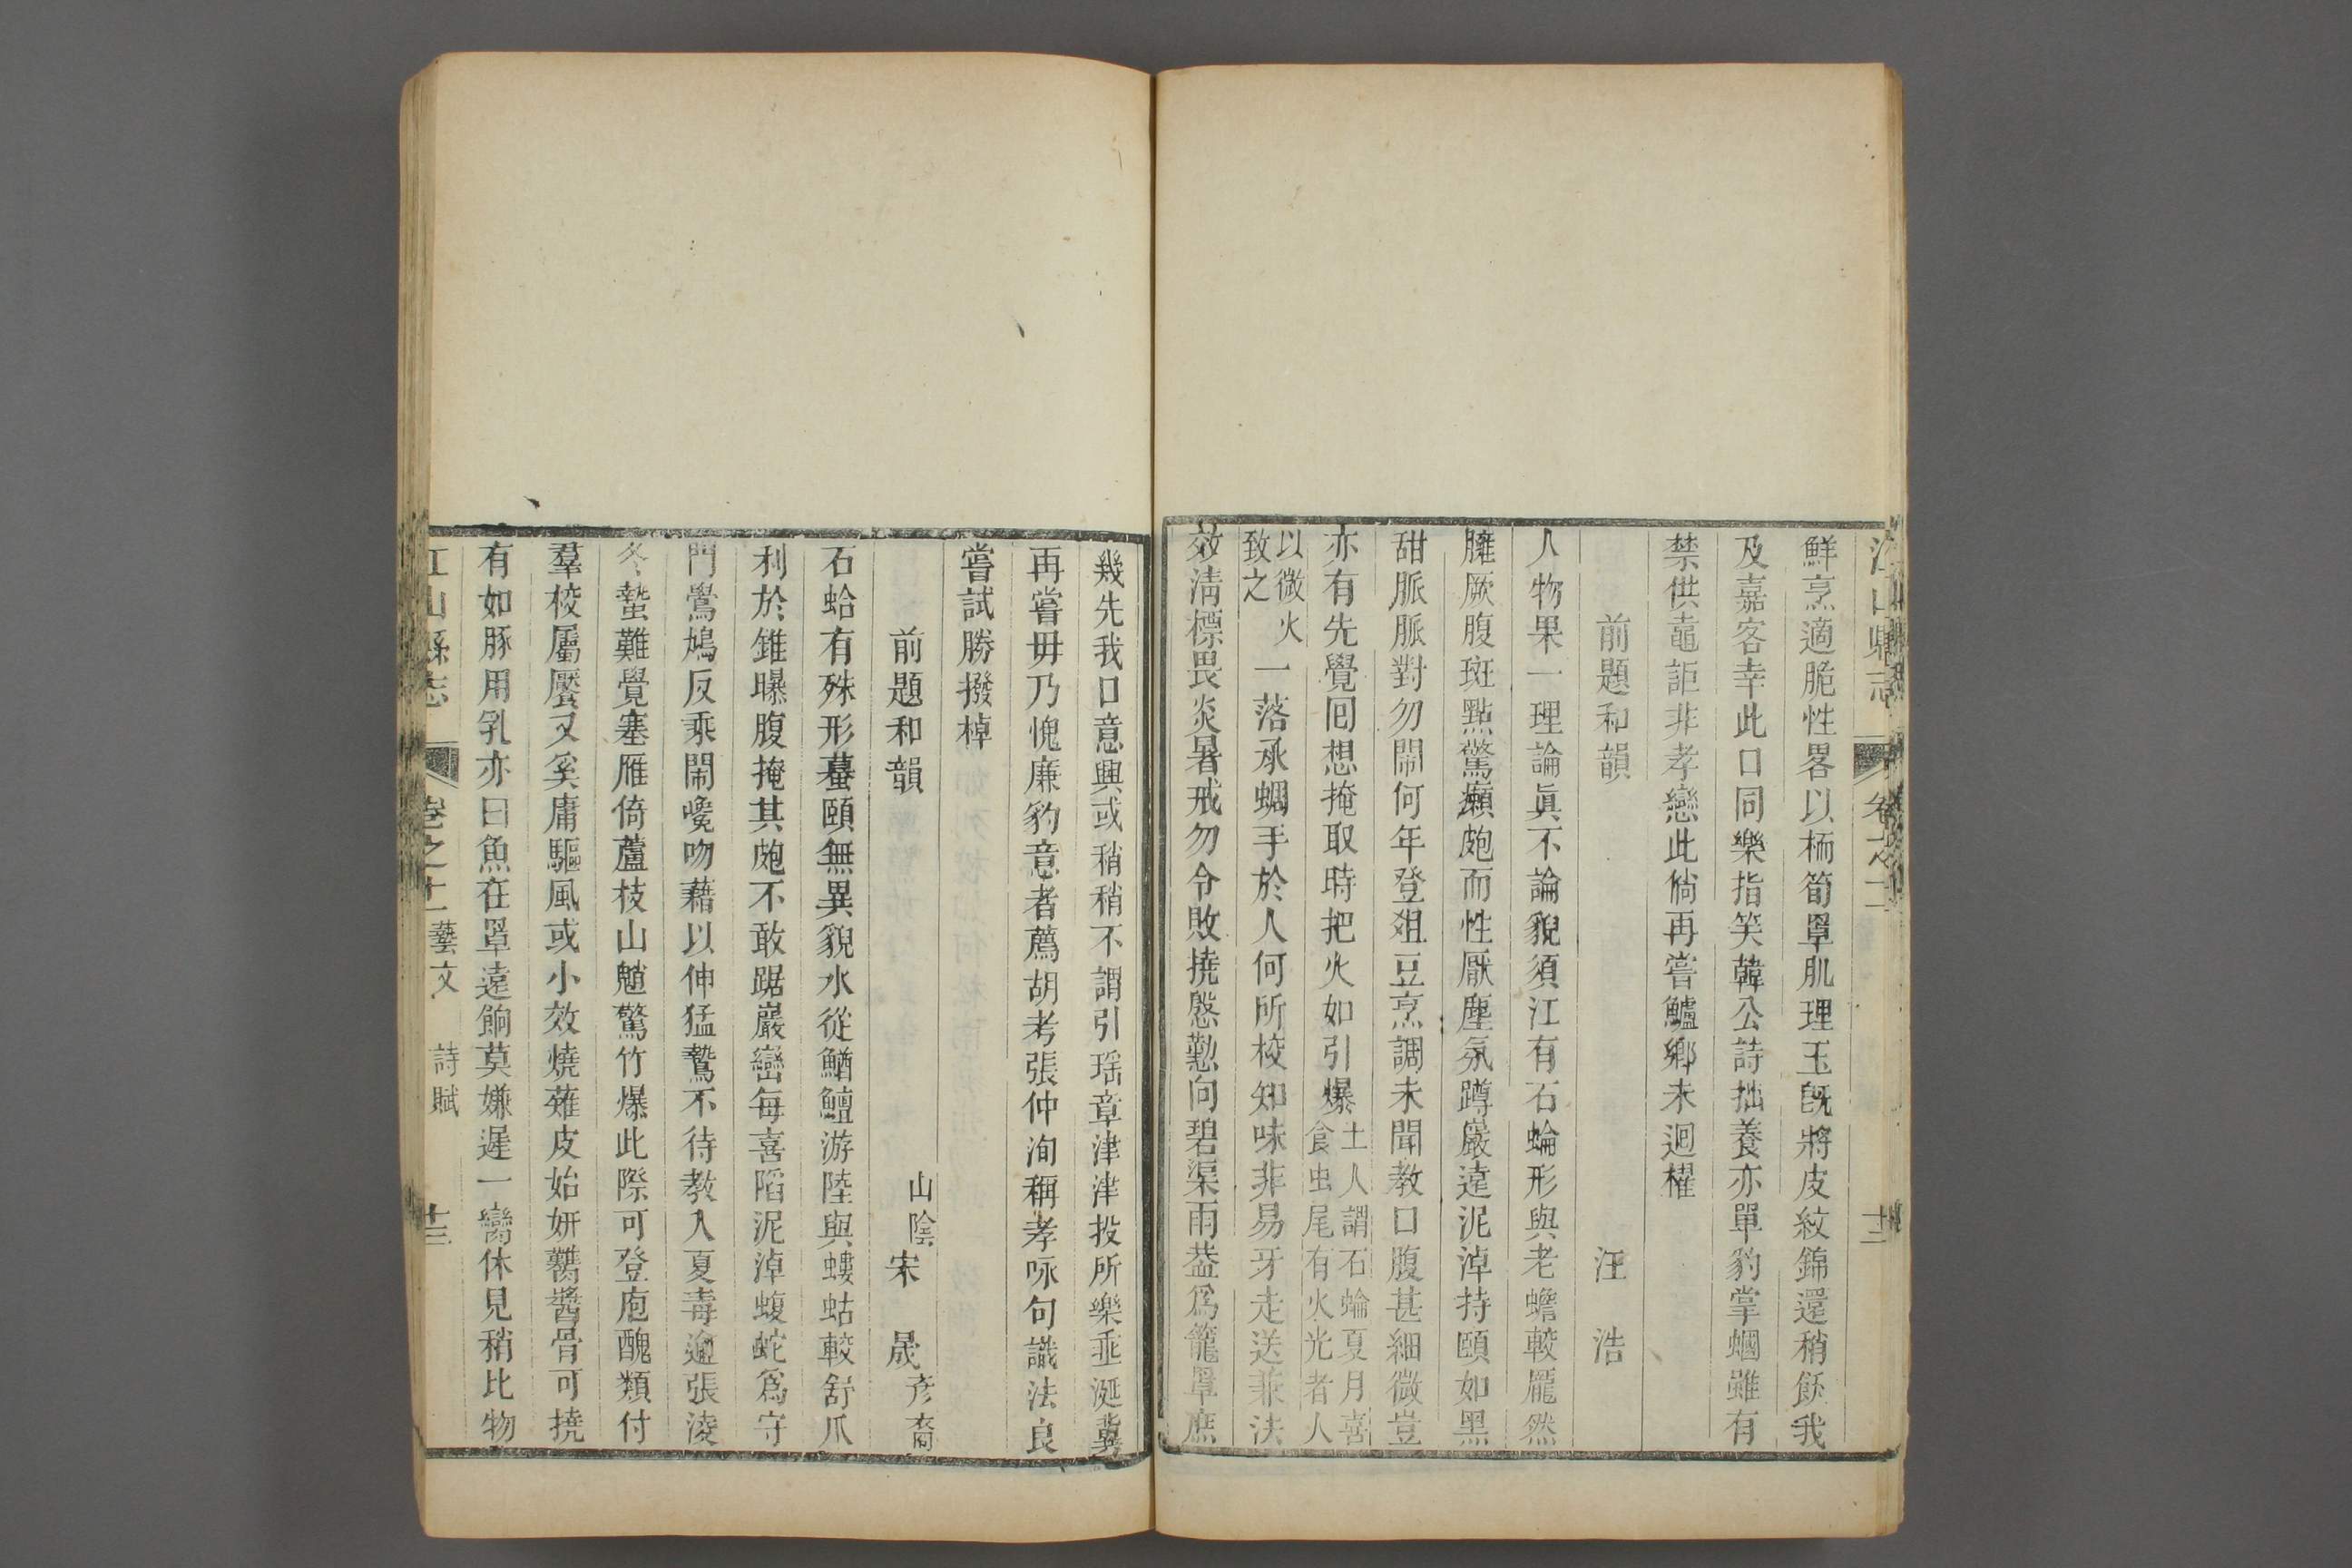 鮮烹適脆性畧以栭筍罩肌理玉旣將皮紋錦還稍飫我
及嘉客幸此口同樂指笑韓公詩拙養亦單豹掌蟈雖有
禁供鼃詎非孝戀此倘再嘗鱸鄉未迴櫂
前題和韻 汪浩
人物果一理論眞不論貌須江有石蜦形與老蟾較龎然
臃厥腹斑點驚癩皰而性厭塵氛蹲巖遠泥淖持頤如黑
甜脈脈對勿鬧何年登俎豆烹調未聞教口腹甚細微豈
亦有先覺囘想掩取時把火如引爆土人謂石蜦夏月喜食虫尾有火光者人
以微火致之一落承蜩手於人何所校知味非易牙走送兼法
效淸標畏炎暑戒勿令敗撓慇懃向碧渠雨葢爲籠罩庶
幾先我口意興或稍稍不謂引瑶章津津投所樂垂涎冀
再嘗毋乃愧廉豹意者薦胡考張仲洵稱孝咏句識法良
嘗試勝撥棹
前題和韻 山陰宋晟彥裔
石蛤有殊形蟇頤無異貌水從鰌鱣游陸與螻蛄較舒爪
利於錐曝腹掩其皰不敢踞巖巒每喜蹈泥淖蝮蛇爲守
門鷽鳩反乘鬧巉吻藉以伸猛鷙不待教入夏毒逾張淩
冬蟄難覺塞雁倚蘆枝山魈驚竹爆此際可登庖醜類付
羣校屬饜又奚庸驅風或小效燒薙皮始妍虀醬骨可撓
有如豚用乳亦曰魚在罩遠餉莫嫌遲一臠休見稍比物
江山縣志 卷之十一 藝文 詩賦 十三